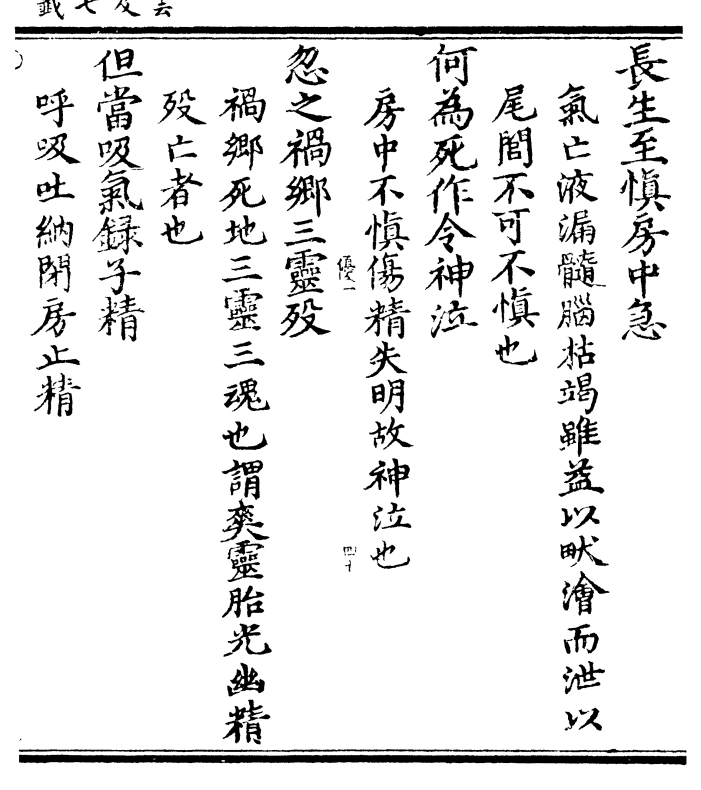 長生至慎房中急
氣亡液漏髓腦枯竭雖益以畎澮而泄以
尾閭不可不慎也
何為死作令神泣
房中不慎傷精失明故神泣也
優一
四十
忽之禍鄉三靈歿
禍鄉死地三靈三魂也謂爽靈胎光幽精
歿亡者也
但當吸氣録子精
呼吸吐納閉房止精